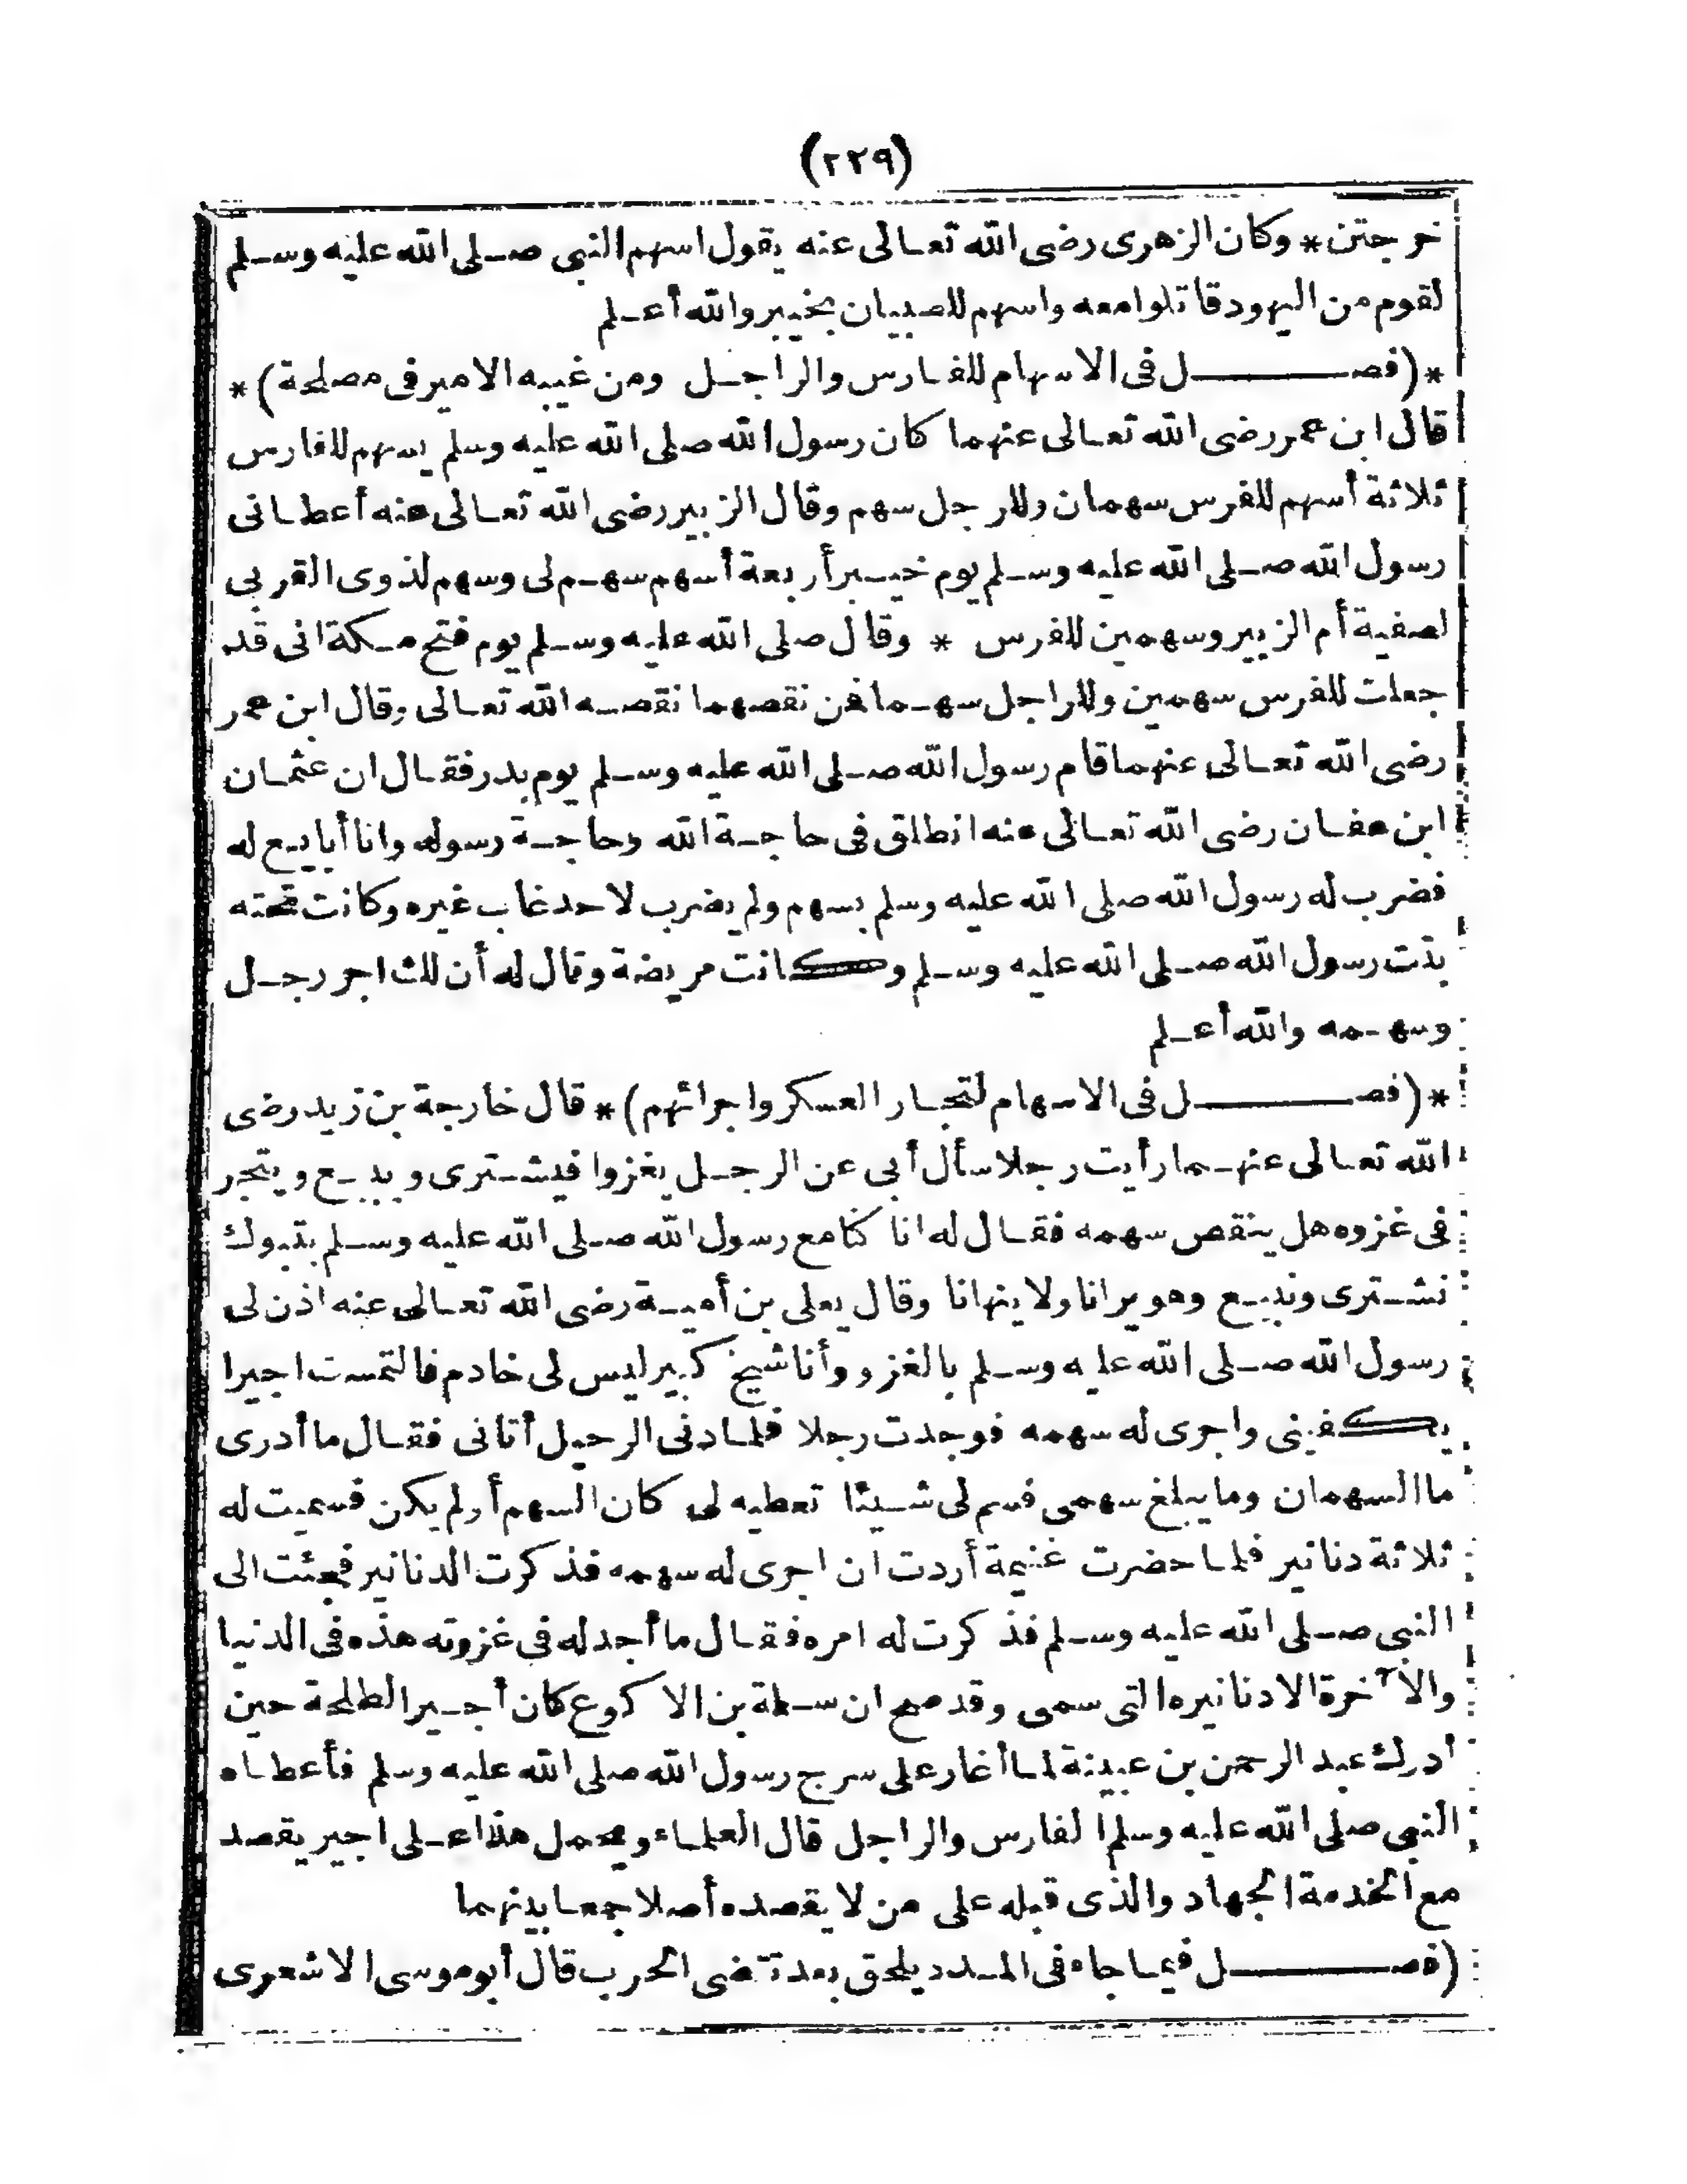 (٢٢٩)
خرجتن * وكان الزهرى رضى الله تعالى عنه يقول اسهم النبى صلى الله عليه وسلم
لقوم من اليهود قاتلوا معه واسهم للصبيان بخيبر والله أعلم
* (فصل فى الاسهام للفارس والراجل ومن غيبه الامير فى مصلحة) *
قال ابن عمر رضى الله تعالى عنهما كان رسول الله صلى الله عليه وسلم يسهم للفارس
ثلاثة أسهم للفرس سهمان وللرجل سهم وقال الزبير رضى الله تعالى عنه أعطانى
رسول الله صلى الله عليه وسلم يوم خيبر أربعة أسهم سهم لى وسهم لذوى القربى
لصفية أم الزبير وسهمين للفرس * وقال صلى الله عليه وسلم يوم فتح مكة انى قد
جعلت للفرس سهمين وللراجل سهما فمن نقصهما نقصه الله تعالى وقال ابن عمر
رضى الله تعالى عنهما قام رسول الله صلى الله عليه وسلم يوم بدر فقال ان عثمان
ابن عفان رضى الله تعالى عنه انطلق فى حاجة الله وحاجة رسوله وانا أبايع له
فضرب له رسول الله صلى الله عليه وسلم بسهم ولم يضرب لاحد غاب غيره وكانت تحته
بنت رسول الله صلى الله عليه وسلم وكانت مريضة وقال له أن لك اجر رجل
وسهمه والله أعلم
* (فصل فى الاسهام لتجار العسكر واجرائهم) * قال خارجة بن زيد رضى
الله تعالى عنهما رأيت رجلا سأل أبى عن الرجل يغزوا فيشترى ويبيع ويتجر
فى غزوه هل ينقص سهمه فقال له انا كنا مع رسول الله صلى الله عليه وسلم بتبوك
نشترى ونبيع وهو يرانا ولا ينهانا وقال يعلى بن أمية رضى الله تعالى عنه اذن لى
رسول الله صلى الله عليه وسلم بالغزو وأنا شيخ كبير ليس لى خادم فالتمست اجيرا
يكفينى واجرى له سهمه فوجدت رجلا فلما دنى الرحيل أتانى فقال ما أدرى
ما السهمان وما يبلغ سهمى فسم لى شيئا تعطيه لى كان السهم أو لم يكن فسميت له
ثلاثة دنانير فلما حضرت غنيمة أردت ان اجرى له سهمه فذكرت الدنانير فجئت الى
النبى صلى الله عليه وسلم فذكرت له امره فقال ما أجد له فى غزوته هذه فى الدنيا
والآخرة الا دنانيره التى سمى وقد صح ان سلمة بن الاكوع كان أجيرا لطلحة حين
أدرك عبد الرحمن بن عيينة لما أغار على سرح رسول الله صلى الله عليه وسلم فأعطاه
النبى صلى الله عليه وسلم الفارس والراجل قال العلماء ويحمل هذا على اجير يقصد
مع الخدمة الجهاد والذى قبله على من لا يقصده أصلا جمعا بينهما
(فصل فيما جاء فى المدد يلحق بعد تقضى الحرب قال أبو موسى الاشعرى